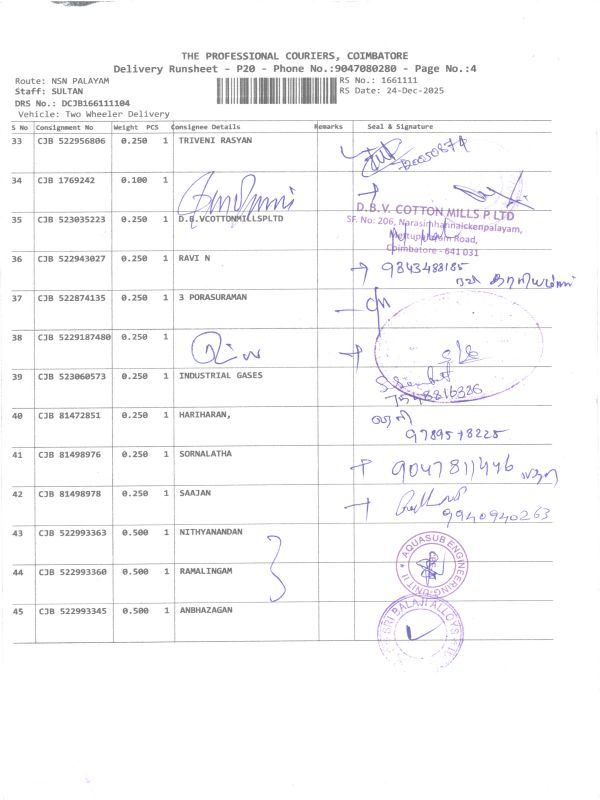 THE PROFESSIONAL COURIERS, COIMBATORE
Delivery Runsheet - P20 - Phone No.:9047080280 - Page No.:4
Route: NSN PALAYAM
RS No.: 1661111
Staff: SULTAN
RS Date: 24-Dec-2025
DRS No.: DCJB166111104
Vehicle: Two Wheeler Delivery
S No Consignment No Weight PCS Consignee Details Remarks Seal & Signature
33 CJB 522956806 0.250 1 TRIVENI RASYAN
34 CJB 1769242 0.100 1
35 CJB 523035223 0.250 1 D.B.VCOTTONMILLSPLTD
D.B.V. COTTON MILLS P LTD
SF. No: 206, Narasimhanaickenpalayam,
Mettupalayam Road,
Coimbatore - 641 031
36 CJB 522943027 0.250 1 RAVI N
9843488185
37 CJB 522874135 0.250 1 3 PORASURAMAN
38 CJB 5229187480 0.250 1
39 CJB 523060573 1 INDUSTRIAL GASES
7548816326
40 CJB 81472851 0.250 1 HARIHARAN,
9789578225
41 CJB 81498976 0.250 1 SORNALATHA
9047811446
42 CJB 81498978 0.250 1 SAAJAN
9940940263
43 CJB 522993363 0.500 1 NITHYANANDAN
AQUASUB ENGINEERING UNIT II
44 CJB 522993360 0.500 1 RAMALINGAM
45 CJB 522993345 0.500 1 ANBHAZAGAN
SRI BALAJI ALLOYS